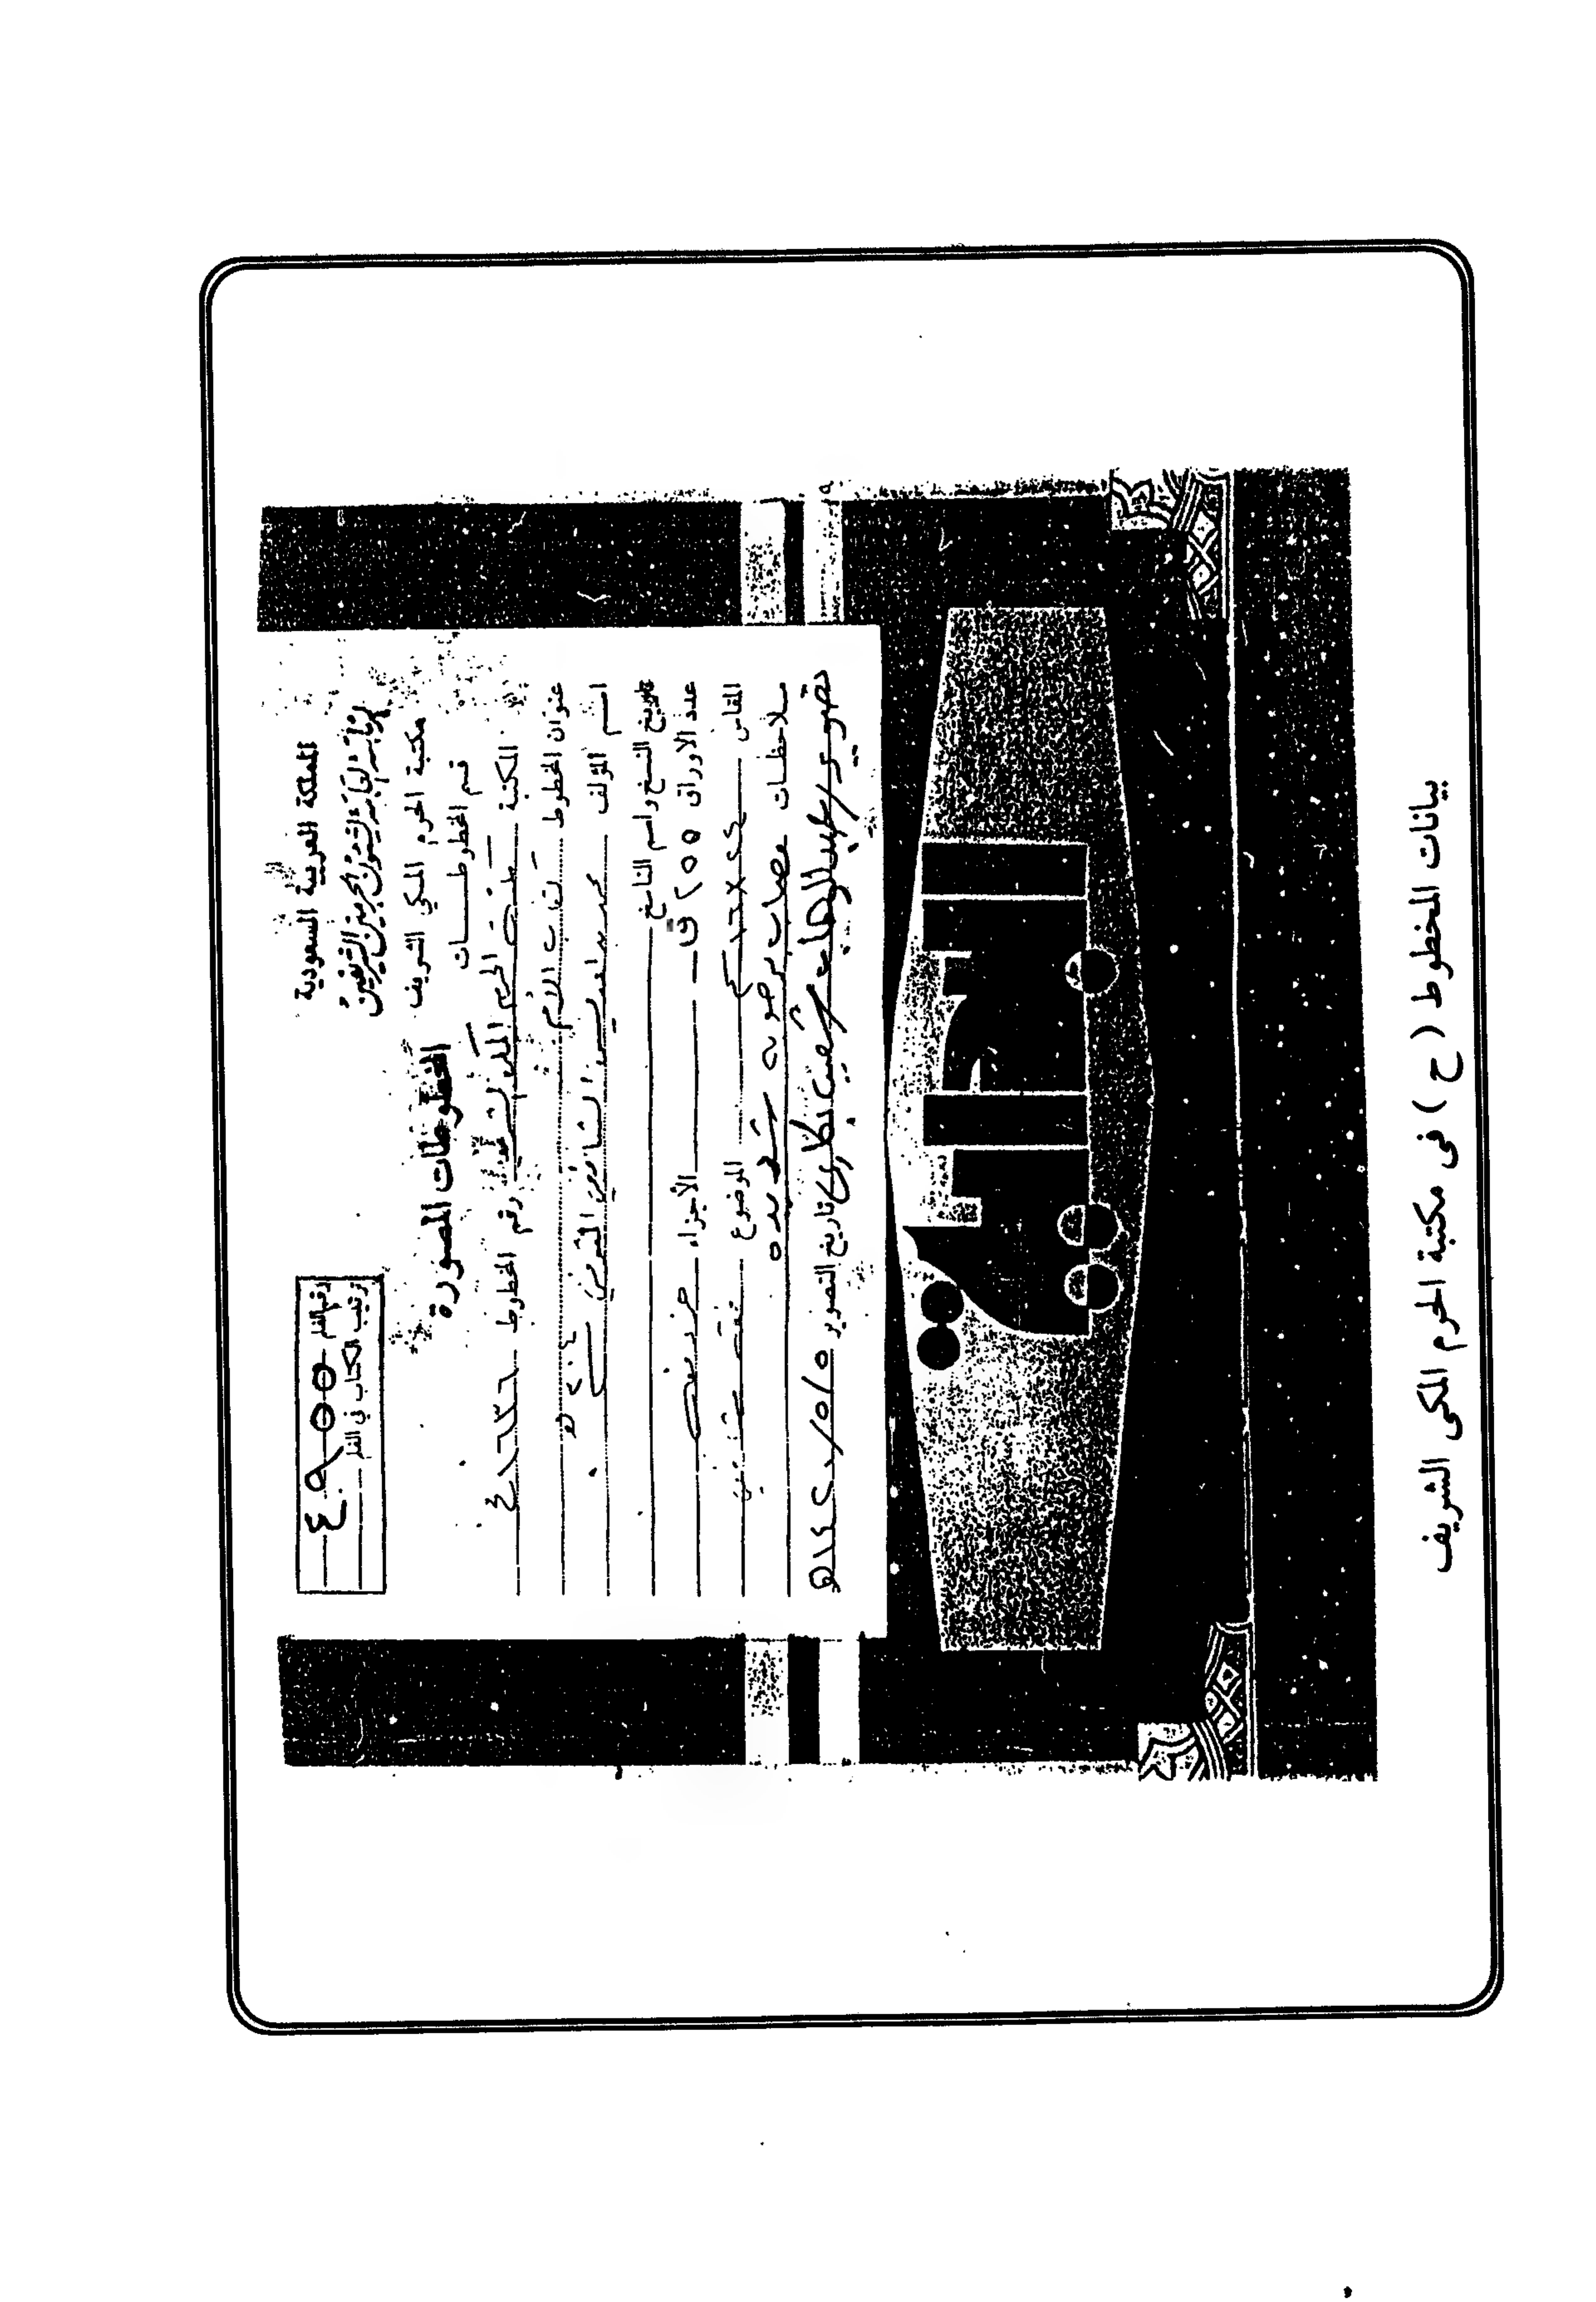 المملكة العربية السعودية
مكتبة الحرم المكي الشريف
قسم المخطوطات
رقم الفلم ٤٠٩٥٥
ترتيب الكتاب في الفلم
المخطوطات المصورة
المكتبة مكتبة الحرم المكي الشريف رقم المخطوط ٣٨٣٦
عنوان المخطوط كتاب الأم
اسم المؤلف محمد بن إدريس الشافعي المتوفى سنة ٢٠٤ هـ
تاريخ النسخ واسم الناسخ
عدد الاوراق ٢٥٥ ق الأجزاء
المقاس الموضوع فقه شافعي
ملاحظات مصاب برطوبة شديدة
تصوير/ عبدالوهاب تاريخ التصوير ١٤٢٠/٥/٥هـ
الأم
بيانات المخطوط ( ح ) فى مكتبة الحرم المكى الشريف